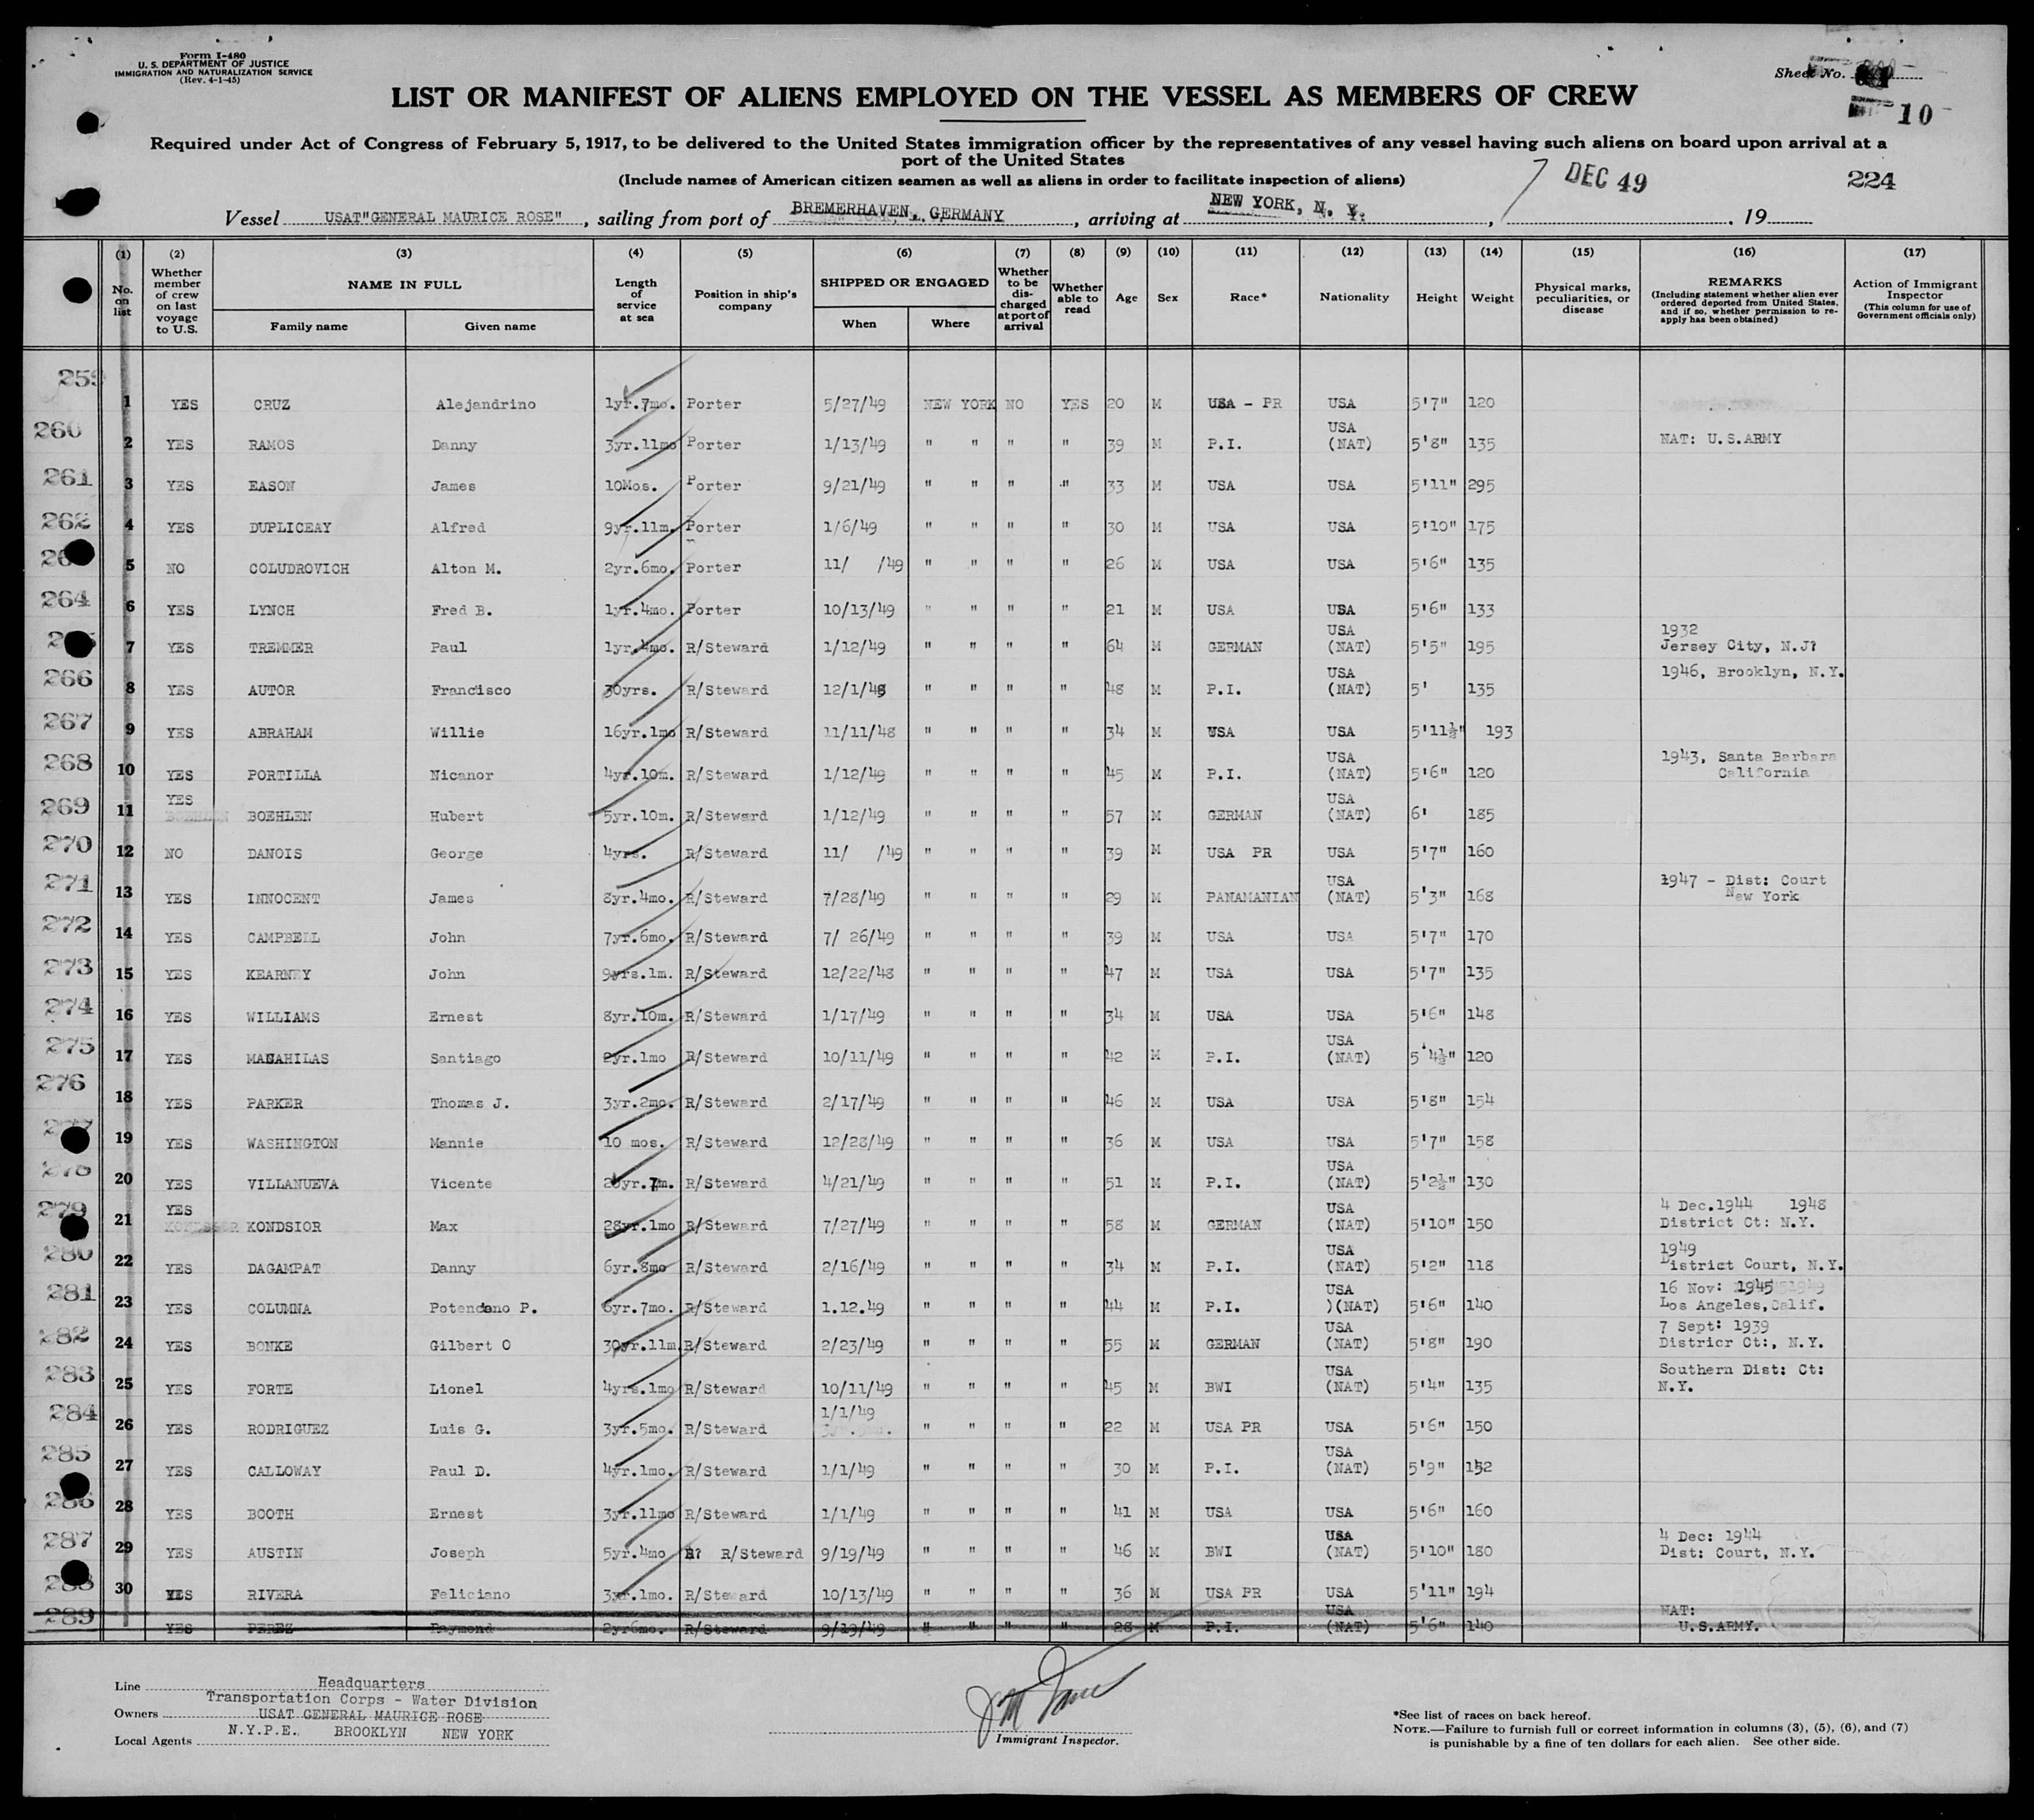 Form I-480
U. S. DEPARTMENT OF JUSTICE
IMMIGRATION AND NATURALIZATION SERVICE
(Rev. 4-1-45)
Sheet No.
10
LIST OR MANIFEST OF ALIENS EMPLOYED ON THE VESSEL AS MEMBERS OF CREW
Required under Act of Congress of February 5, 1917, to be delivered to the United States immigration officer by the representatives of any vessel having such aliens on board upon arrival at a
port of the United States
(Include names of American citizen seamen as well as aliens in order to facilitate inspection of aliens)
7 DEC 49
224
Vessel USAT"GENERAL MAURICE ROSE", sailing from port of BREMERHAVEN, GERMANY, arriving at NEW YORK, N. Y., , 19
(1) (2) (3) (4) (5) (6) (7) (8) (9) (10) (11) (12) (13) (14) (15) (16) (17)
No. on list
Whether member of crew on last voyage to U.S.
NAME IN FULL
Family name
Given name
Length of service at sea
Position in ship's company
SHIPPED OR ENGAGED
When
Where
Whether to be discharged at port of arrival
Whether able to read
Age
Sex
Race*
Nationality
Height
Weight
Physical marks, peculiarities, or disease
REMARKS
(Including statement whether alien ever ordered deported from United States, and if so, whether permission to reapply has been obtained)
Action of Immigrant Inspector
(This column for use of Government officials only)
259 1 YES CRUZ Alejandrino 1yr.7mo. Porter 5/27/49 NEW YORK NO YES 20 M USA - PR USA 5'7" 120
260 2 YES RAMOS Danny 3yr.11mo Porter 1/13/49 " " " " 39 M P.I. USA (NAT) 5'8" 135 NAT: U.S.ARMY
261 3 YES EASON James 10Mos. Porter 9/21/49 " " " " 33 M USA USA 5'11" 295
262 4 YES DUPLICEAY Alfred 9yr.11m. Porter 1/6/49 " " " " 30 M USA USA 5'10" 175
5 NO COLUDROVICH Alton M. 2yr.6mo. Porter 11/ /49 " " " " 26 M USA USA 5'6" 135
264 6 YES LYNCH Fred B. 1yr.4mo. Porter 10/13/49 " " " " 21 M USA USA 5'6" 133
7 YES TREMMER Paul 1yr.4mo. R/Steward 1/12/49 " " " " 64 M GERMAN USA (NAT) 5'5" 195 1932 Jersey City, N.J?
266 8 YES AUTOR Francisco 30yrs. R/Steward 12/1/48 " " " " 48 M P.I. USA (NAT) 5' 135 1946, Brooklyn, N.Y.
267 9 YES ABRAHAM Willie 16yr.1mo R/Steward 11/11/48 " " " " 34 M USA USA 5'11½" 193
268 10 YES PORTILLA Nicanor 4yr.10m. R/Steward 1/12/49 " " " " 45 M P.I. USA (NAT) 5'6" 120 1943, Santa Barbara California
269 11 YES BOEHLEN Hubert 5yr.10m. R/Steward 1/12/49 " " " " 57 M GERMAN USA (NAT) 6' 185
270 12 NO DANOIS George 4yrs. R/Steward 11/ /49 " " " " 39 M USA PR USA 5'7" 160
271 13 YES INNOCENT James 8yr.4mo. R/Steward 7/28/49 " " " " 29 M PANAMANIAN USA (NAT) 5'3" 168 1947 - Dist: Court New York
272 14 YES CAMPBELL John 7yr.6mo. R/Steward 7/ 26/49 " " " " 39 M USA USA 5'7" 170
273 15 YES KEARNEY John 9yrs.1m. R/Steward 12/22/48 " " " " 47 M USA USA 5'7" 135
274 16 YES WILLIAMS Ernest 8yr.10m. R/Steward 1/17/49 " " " " 34 M USA USA 5'6" 148
275 17 YES MAGAHILAS Santiago 2yr.1mo R/Steward 10/11/49 " " " " 42 M P.I. USA (NAT) 5'4½" 120
276 18 YES PARKER Thomas J. 3yr.2mo. R/Steward 2/17/49 " " " " 46 M USA USA 5'8" 154
19 YES WASHINGTON Mannie 10 mos. R/Steward 12/28/49 " " " " 36 M USA USA 5'7" 158
278 20 YES VILLANUEVA Vicente R/Steward 4/21/49 " " " " 51 M P.I. USA (NAT) 5'2½" 130
279 21 YES KONDSIOR Max 28yr.1mo R/Steward 7/27/49 " " " " 58 M GERMAN USA (NAT) 5'10" 150 4 Dec.1944 1948 District Ct: N.Y.
280 22 YES DAGAMPAT Danny 6yr.8mo R/Steward 2/16/49 " " " " 34 M P.I. USA (NAT) 5'2" 118 1949 District Court, N.Y.
281 23 YES COLUMNA Potenciano P. 6yr.7mo. R/Steward 1.12.49 " " " " 44 M P.I. USA )(NAT) 5'6" 140 16 Nov: 1945 Los Angeles, Calif.
282 24 YES BONKE Gilbert O 30yr.11m R/Steward 2/23/49 " " " " 55 M GERMAN USA (NAT) 5'8" 190 7 Sept: 1939 Districr Ct:, N.Y.
283 25 YES FORTE Lionel 4yrs.1mo R/Steward 10/11/49 " " " " 45 M BWI USA (NAT) 5'4" 135 Southern Dist: Ct: N.Y.
284 26 YES RODRIGUEZ Luis G. 3yr.5mo. R/Steward 1/1/49 " " " " 22 M USA PR USA 5'6" 150
285 27 YES CALLOWAY Paul D. 4yr.1mo. R/Steward 1/1/49 " " " " 30 M P.I. USA (NAT) 5'9" 152
286 28 YES BOOTH Ernest 3yr.11mo R/Steward 1/1/49 " " " " 41 M USA USA 5'6" 160
287 29 YES AUSTIN Joseph 5yr.4mo R/Steward 9/19/49 " " " " 46 M BWI USA (NAT) 5'10" 180 4 Dec: 1944 Dist: Court, N.Y.
288 30 YES RIVERA Feliciano 3yr.1mo. R/Steward 10/13/49 " " " " 36 M USA PR USA 5'11" 194
289 YES PEREZ Raymond 2yr6mo. R/Steward 9/19/49 " " " " 28 M P.I. USA (NAT) 5'6" 140 NAT: U.S.ARMY.
Line Headquarters
Transportation Corps - Water Division
Owners USAT GENERAL MAURICE ROSE
Local Agents N.Y.P.E. BROOKLYN NEW YORK
Immigrant Inspector.
*See list of races on back hereof.
NOTE.—Failure to furnish full or correct information in columns (3), (5), (6), and (7)
is punishable by a fine of ten dollars for each alien. See other side.